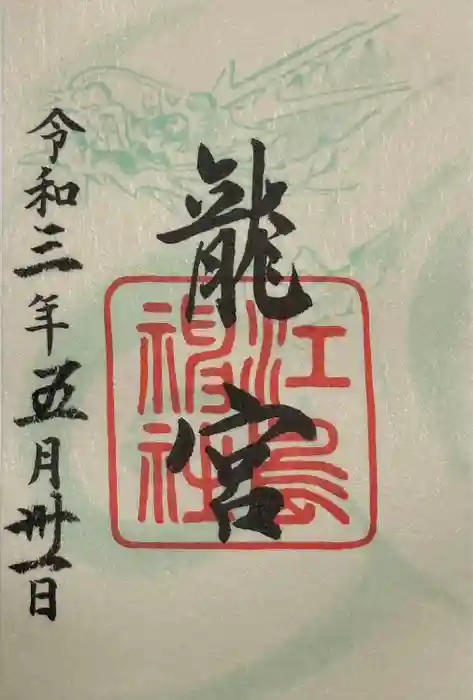 龍宮
江島
神社
令和三年五月卅一日